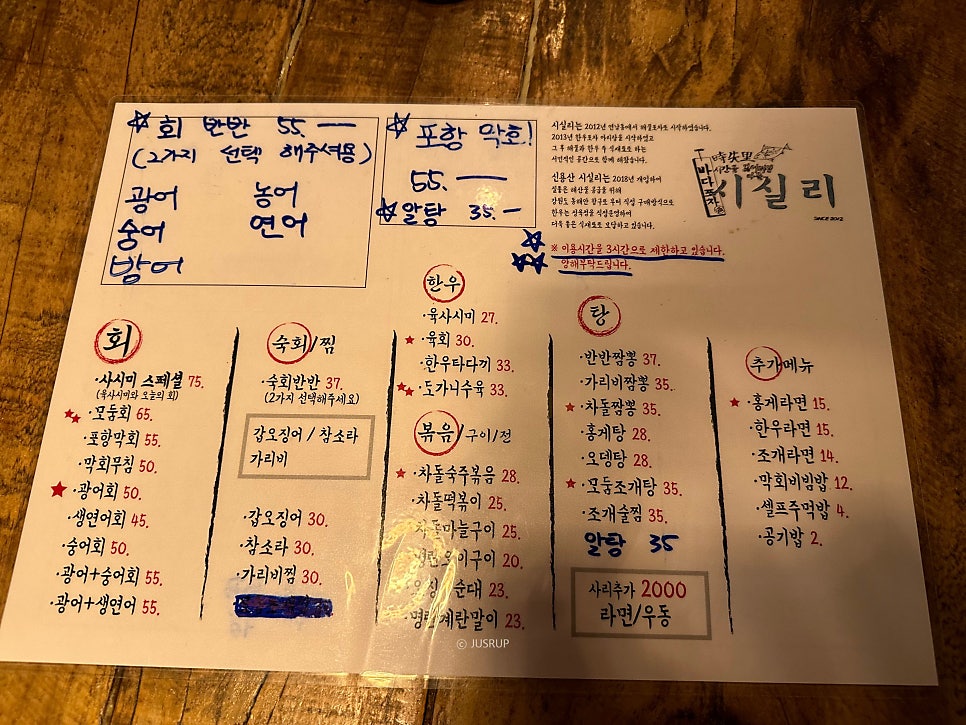 ☆ 회 반반 55. ―
(2가지 선택 해주셔용)
광어 농어
숭어 연어
방어
☆ 포항 막회!
55. ―
☆알탕 35. ―
시실리는 2012년 연남동에서 해물포차로 시작하였습니다.
서민적인 공간으로 함께 해왔습니다.
신용산 시실리는 2018년 개업하여
더욱 좋은 식재료로 보답하고 있습니다.
※ 이용시간을 3시간으로 제한하고 있습니다.
양해부탁드립니다.
時失里
바다포차
시실리
SINCE 2012
회
·사시미 스페셜 75.
(육사시미와 오늘의 회)
·모둠회 65.
·포항막회 55.
·막회무침 50.
·광어회 50.
·생연어회 45.
·숭어회 50.
·광어+숭어회 55.
·광어+생연어 55.
숙회/찜
·숙회반반 37.
(2가지 선택해주세요)
갑오징어 / 참소라
가리비
·갑오징어 30.
·참소라 30.
·가리비찜 30.
한우
·육사시미 27.
·육회 30.
·한우타다끼 33.
·도가니수육 33.
볶음/구이/전
·차돌숙주볶음 28.
·차돌떡볶이 25.
·차돌마늘구이 25.
·명란오이구이 20.
·오징어순대 23.
·명란계란말이 23.
탕
·반반짬뽕 37.
·가리비짬뽕 35.
·차돌짬뽕 35.
·홍게탕 28.
·오뎅탕 28.
·모둠조개탕 35.
·조개술찜 35.
알탕 35
사리추가 2000
라면/우동
추가메뉴
·홍게라면 15.
·한우라면 15.
·조개라면 14.
·막회비빔밥 12.
·셀프주먹밥 4.
·공기밥 2.
© JUSRUP